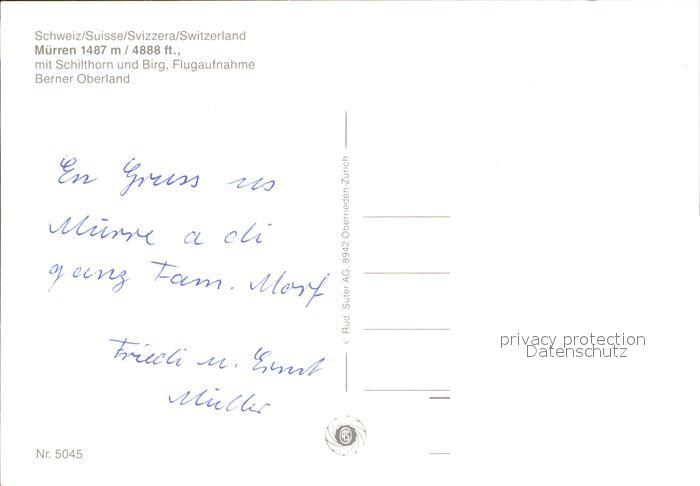 Schweiz/Suisse/Svizzera/Switzerland
Mürren 1487 m / 4888 ft.,
mit Schilthorn und Birg, Flugaufnahme
Berner Oberland
En Gruss us
Mürre a di
ganz Fam. Morf
Friedi u. Ernst
Müller
© Rud. Suter AG, 8942 Oberrieden-Zürich
privacy protection
Datenschutz
Nr. 5045